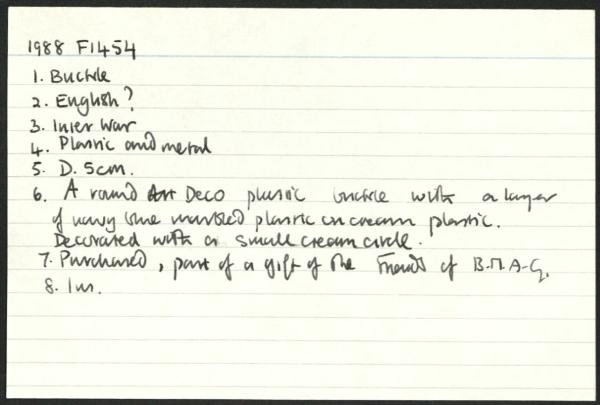 1988 F1454
1. Buckle
2. English?
3. Inter War
4. Plastic and metal
5. D. 5cm.
6. A round Art Deco plastic buckle with a layer
of navy blue marbled plastic on cream plastic.
Decorated with a small cream circle.
7. Purchased, part of a gift of the Friends of B.M.A.G.
8.